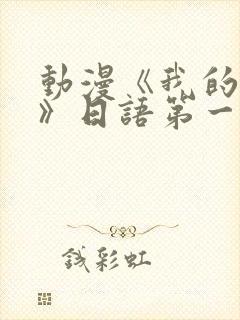 動漫《我的
》日語第一
錢彩虹